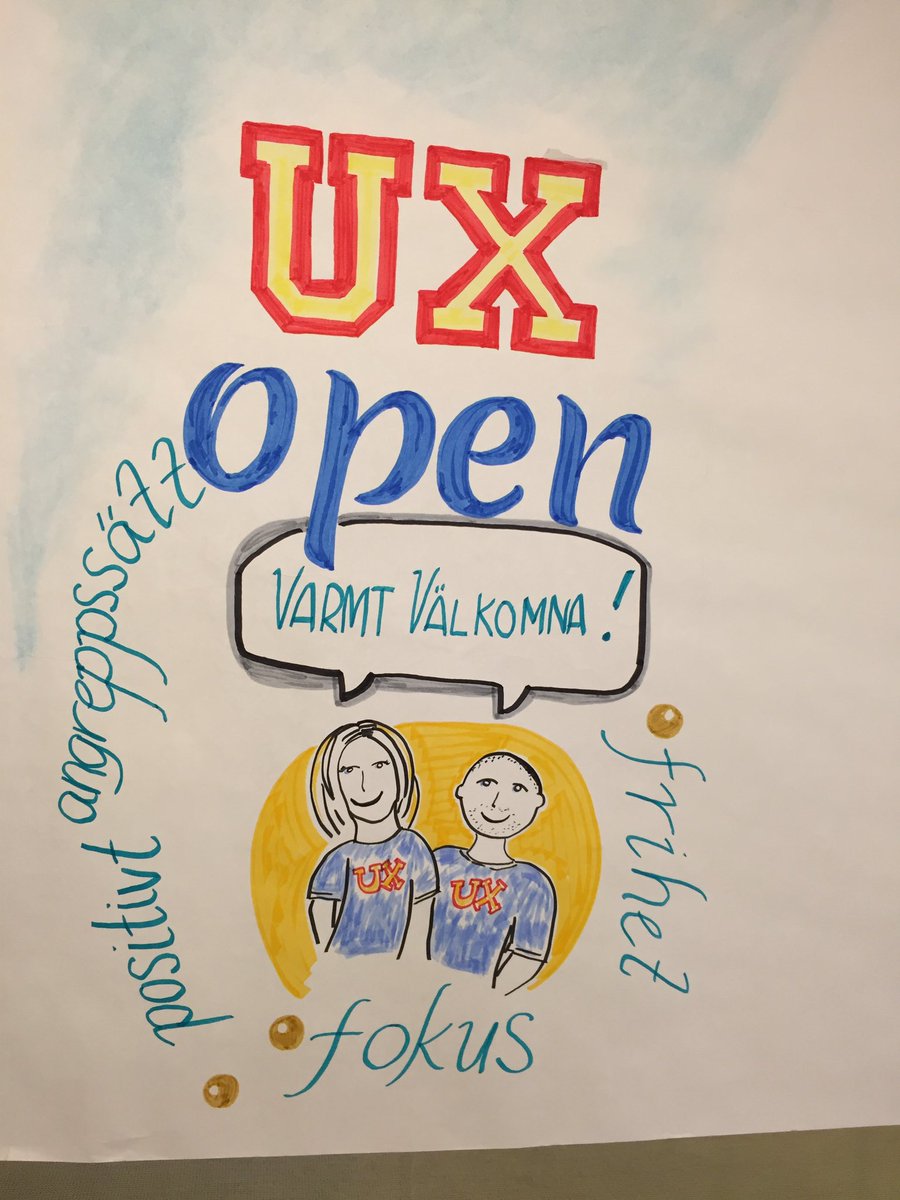 UX
open
VARMT VÄLKOMNA!
UX
UX
positivt angreppssätt
fokus
frihet